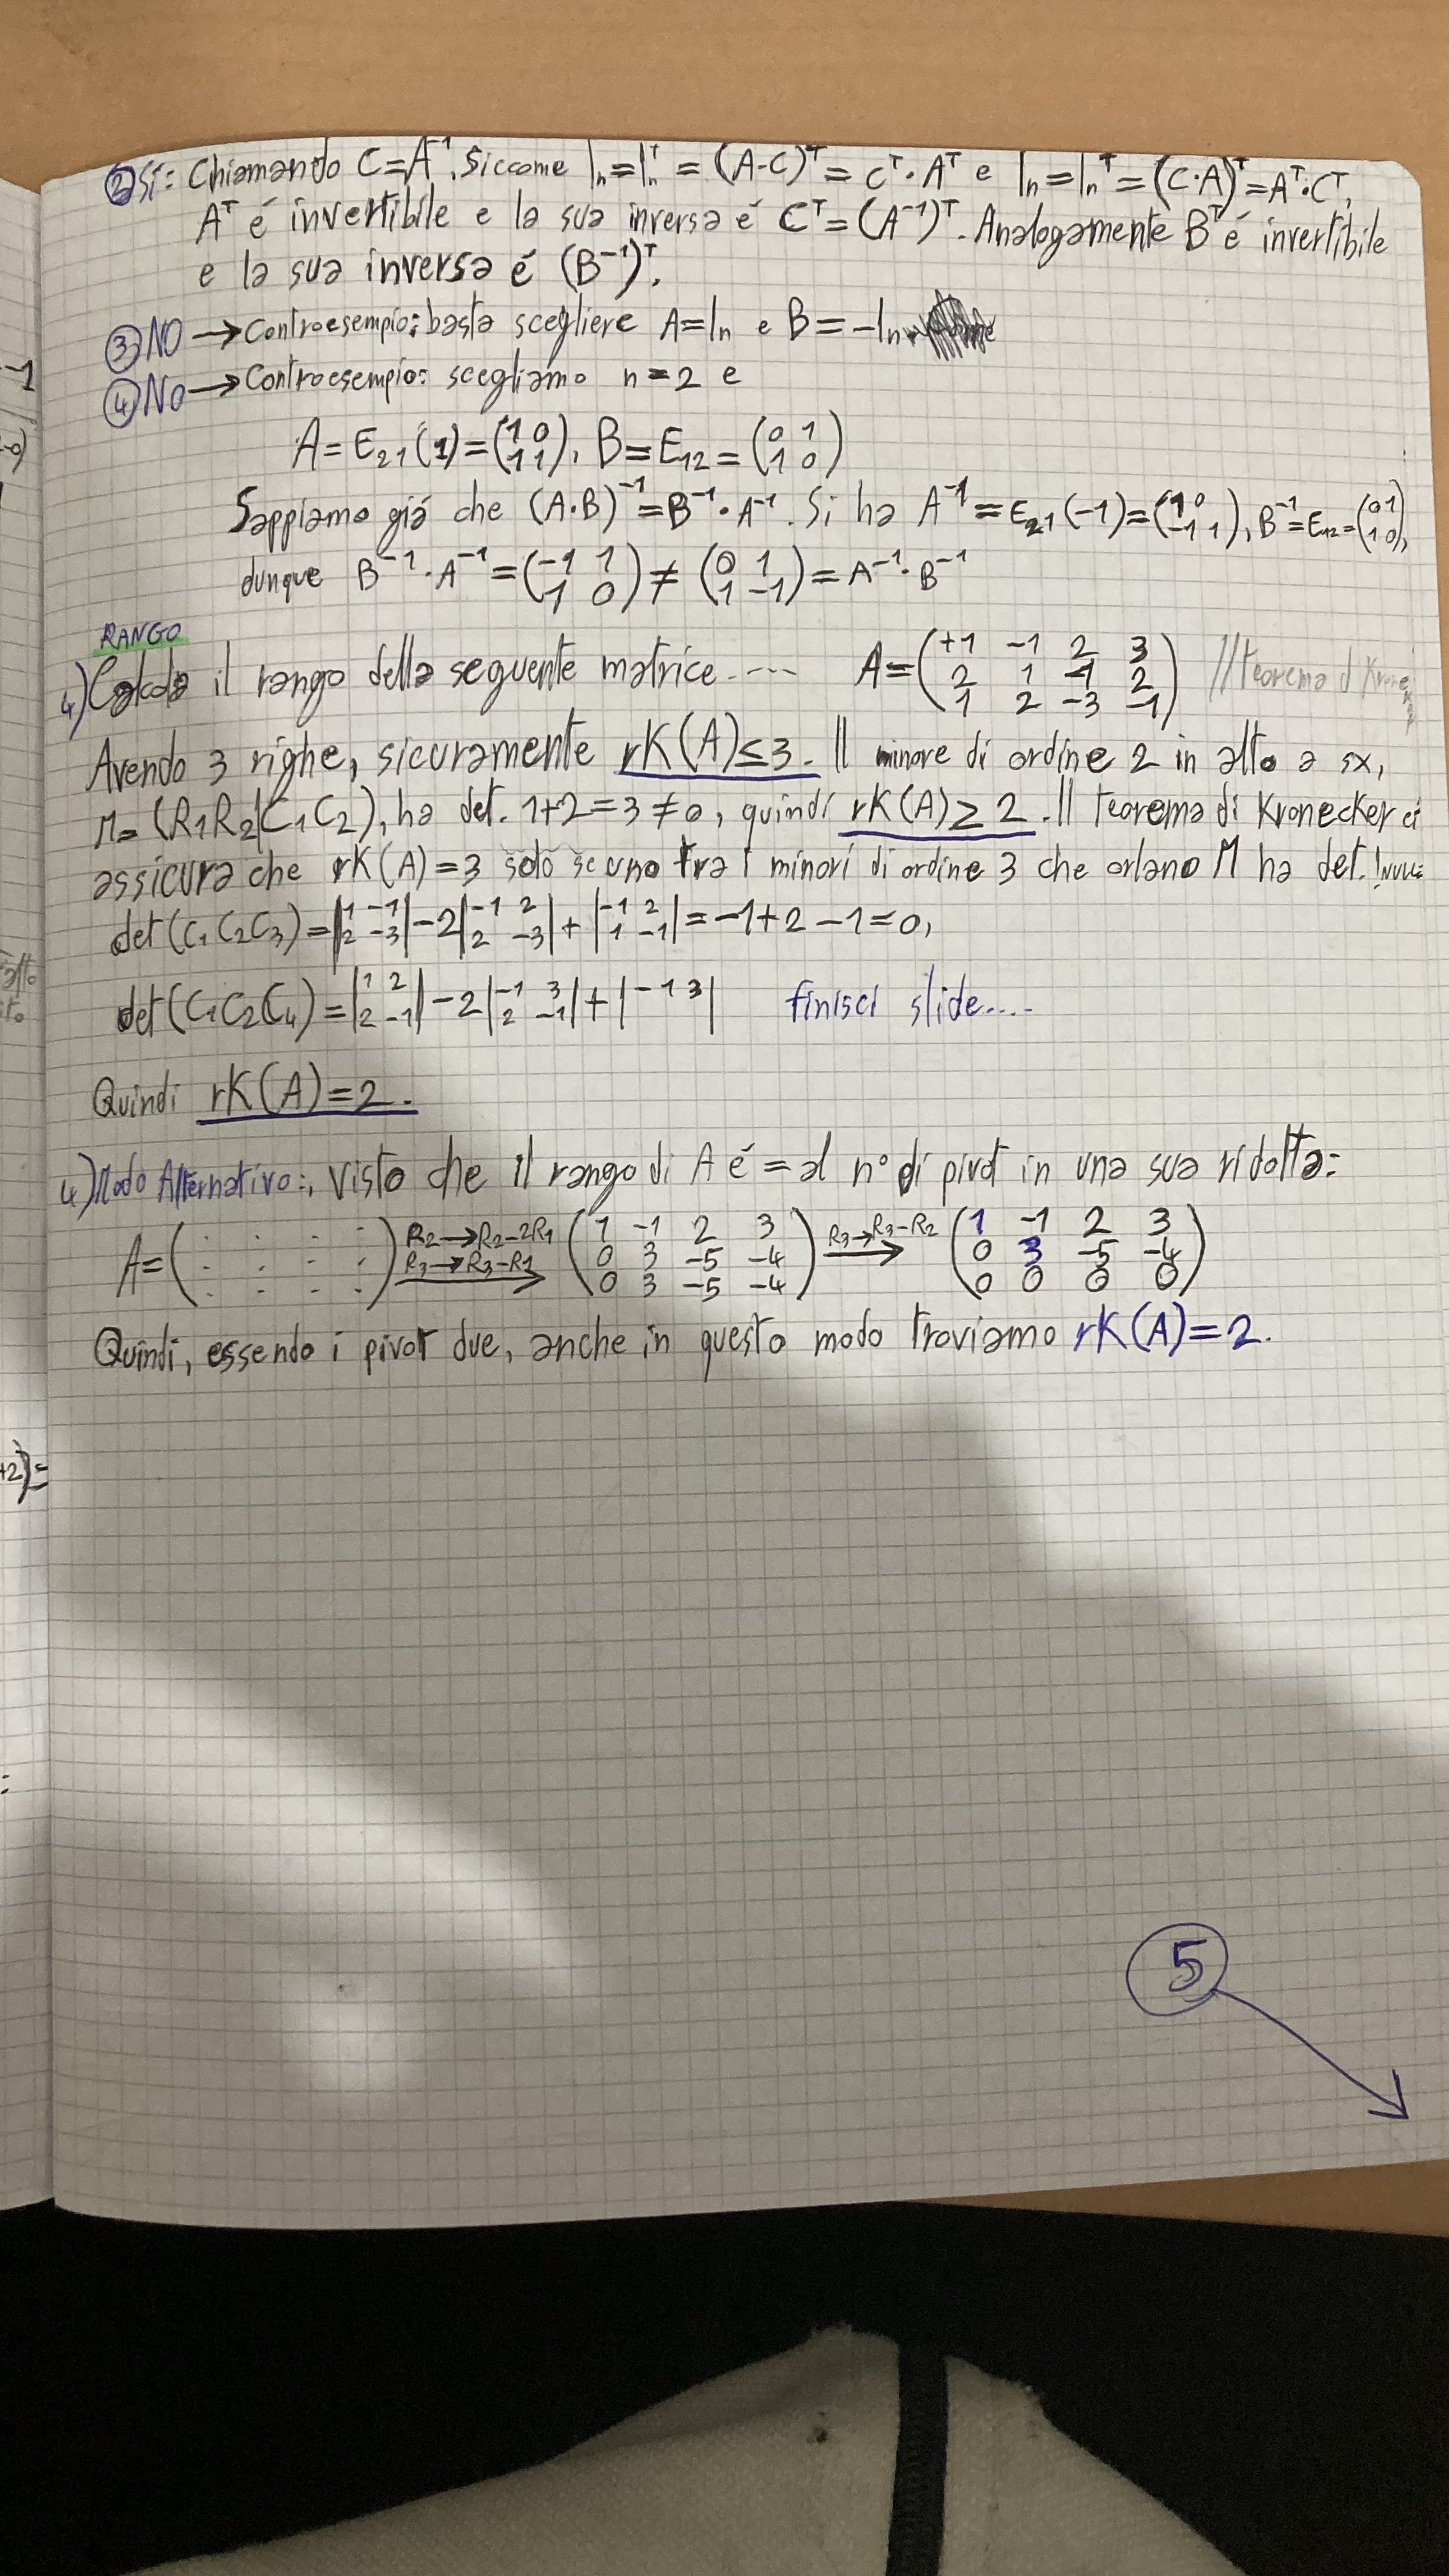 ② Sí: Chiamando C=A⁻¹. Siccome Iₙ=Iₙᵀ = (A·C)ᵀ = Cᵀ·Aᵀ e Iₙ=Iₙᵀ=(C·A)ᵀ=Aᵀ·Cᵀ,
Aᵀ é invertibile e la sua inversa é Cᵀ=(A⁻¹)ᵀ. Analogamente Bᵀ é invertibile
e la sua inversa é (B⁻¹)ᵀ.
③ NO → Controesempio: basta scegliere A=Iₙ e B=-Iₙ.
④ No → Controesempio: scegliamo n=2 e
A=E₂₁(1)=(1 0 / 1 1), B=E₁₂=(0 1 / 1 0)
Sappiamo giá che (A·B)⁻¹=B⁻¹·A⁻¹. Si ha A⁻¹=E₂₁(-1)=(1 0 / -1 1), B⁻¹=E₁₂=(0 1 / 1 0),
dunque B⁻¹·A⁻¹=(-1 1 / 1 0) ≠ (0 1 / 1 -1)=A⁻¹·B⁻¹
RANGO
4) Calcola il rango della seguente matrice.... A=(+1 -1 2 3 / 2 1 -1 2 / 1 2 -3 -1) //Teorema d
Avendo 3 righe, sicuramente rK(A)≤3. Il minore di ordine 2 in alto a sx,
M=(R₁R₂|C₁C₂), ha det. 1+2=3≠0, quindi rK(A)≥2. Il Teorema di Kronecker ci
assicura che rK(A)=3 solo se uno tra i minori di ordine 3 che orlano M ha det.
det(C₁C₂C₃)=|1 -1 / 2 -3|-2|-1 2 / 2 -3|+|-1 2 / 1 -1|=-1+2-1=0,
det(C₁C₂C₄)=|1 2 / 2 -1|-2|-1 3 / 2 -1|+|-1 3| finisci slide....
Quindi rK(A)=2.
4) Modo Alternativo:, visto che il rango di A é = al n° di pivot in una sua ridotta:
A=(. . . . / . . . . / . . . .) R₂→R₂-2R₁ R₃→R₃-R₁ (1 -1 2 3 / 0 3 -5 -4 / 0 3 -5 -4) R₃→R₃-R₂ (1 -1 2 3 / 0 3 -5 -4 / 0 0 0 0)
Quindi, essendo i pivot due, anche in questo modo troviamo rK(A)=2.
5
-1
+2)=